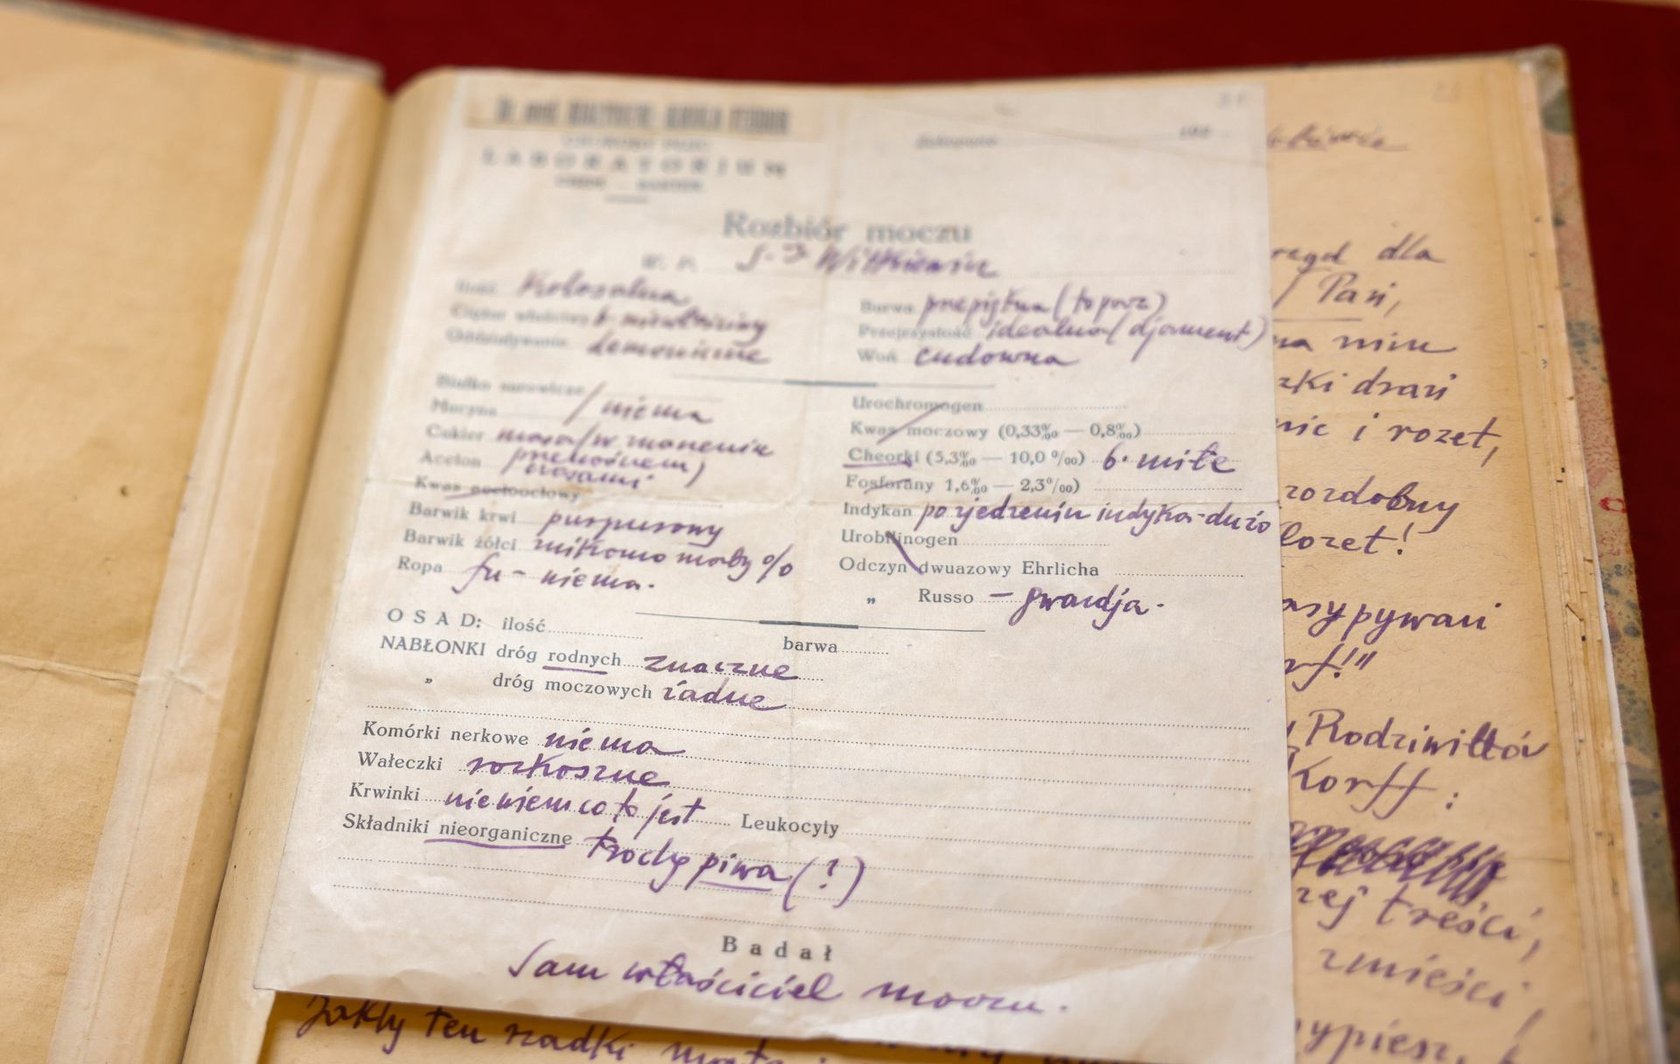 LABORATORJUM
Rozbiór moczu
W. P. S. I Witkiewicz
Ilość Kolosalna
Ciężar właściwy b.
Oddziaływanie demoniczne
Barwa przepiękna (topaz)
Przejrzystość idealna (djament)
Woń cudowna
Białko surowicze
Mucyna / niema
Cukier masa (w
Aceton czasami
Kwas acetooctowy
Barwik krwi purpurowy
Barwik żółci nikomo
Ropa fu – niema.
Urochromogen
Kwas moczowy (0,33‰ — 0,8‰)
Cheorki (5,3‰ — 10,0 ‰) b. miłe
Fosforany 1,6‰ — 2,3‰)
Indykan po zjedzeniu indyka – dużo
Urobilinogen
Odczyn dwuazowy Ehrlicha
„ Russo – gwardja.
OSAD: ilość barwa
NABŁONKI dróg rodnych znaczne
„ dróg moczowych żadne
Komórki nerkowe niema
Wałeczki rozkoszne
Krwinki niewiem co to jest Leukocyty
Składniki nieorganiczne trochę piwa (!)
Badał
Sam właściciel moczu.
dla
Pań,
na nim
drań
nic i rozet,
rozdobny
lozet!
asypywań
rf!"
Radziwiłłów
Korff:
treści,
zmieści,
Jakby ten rzadki